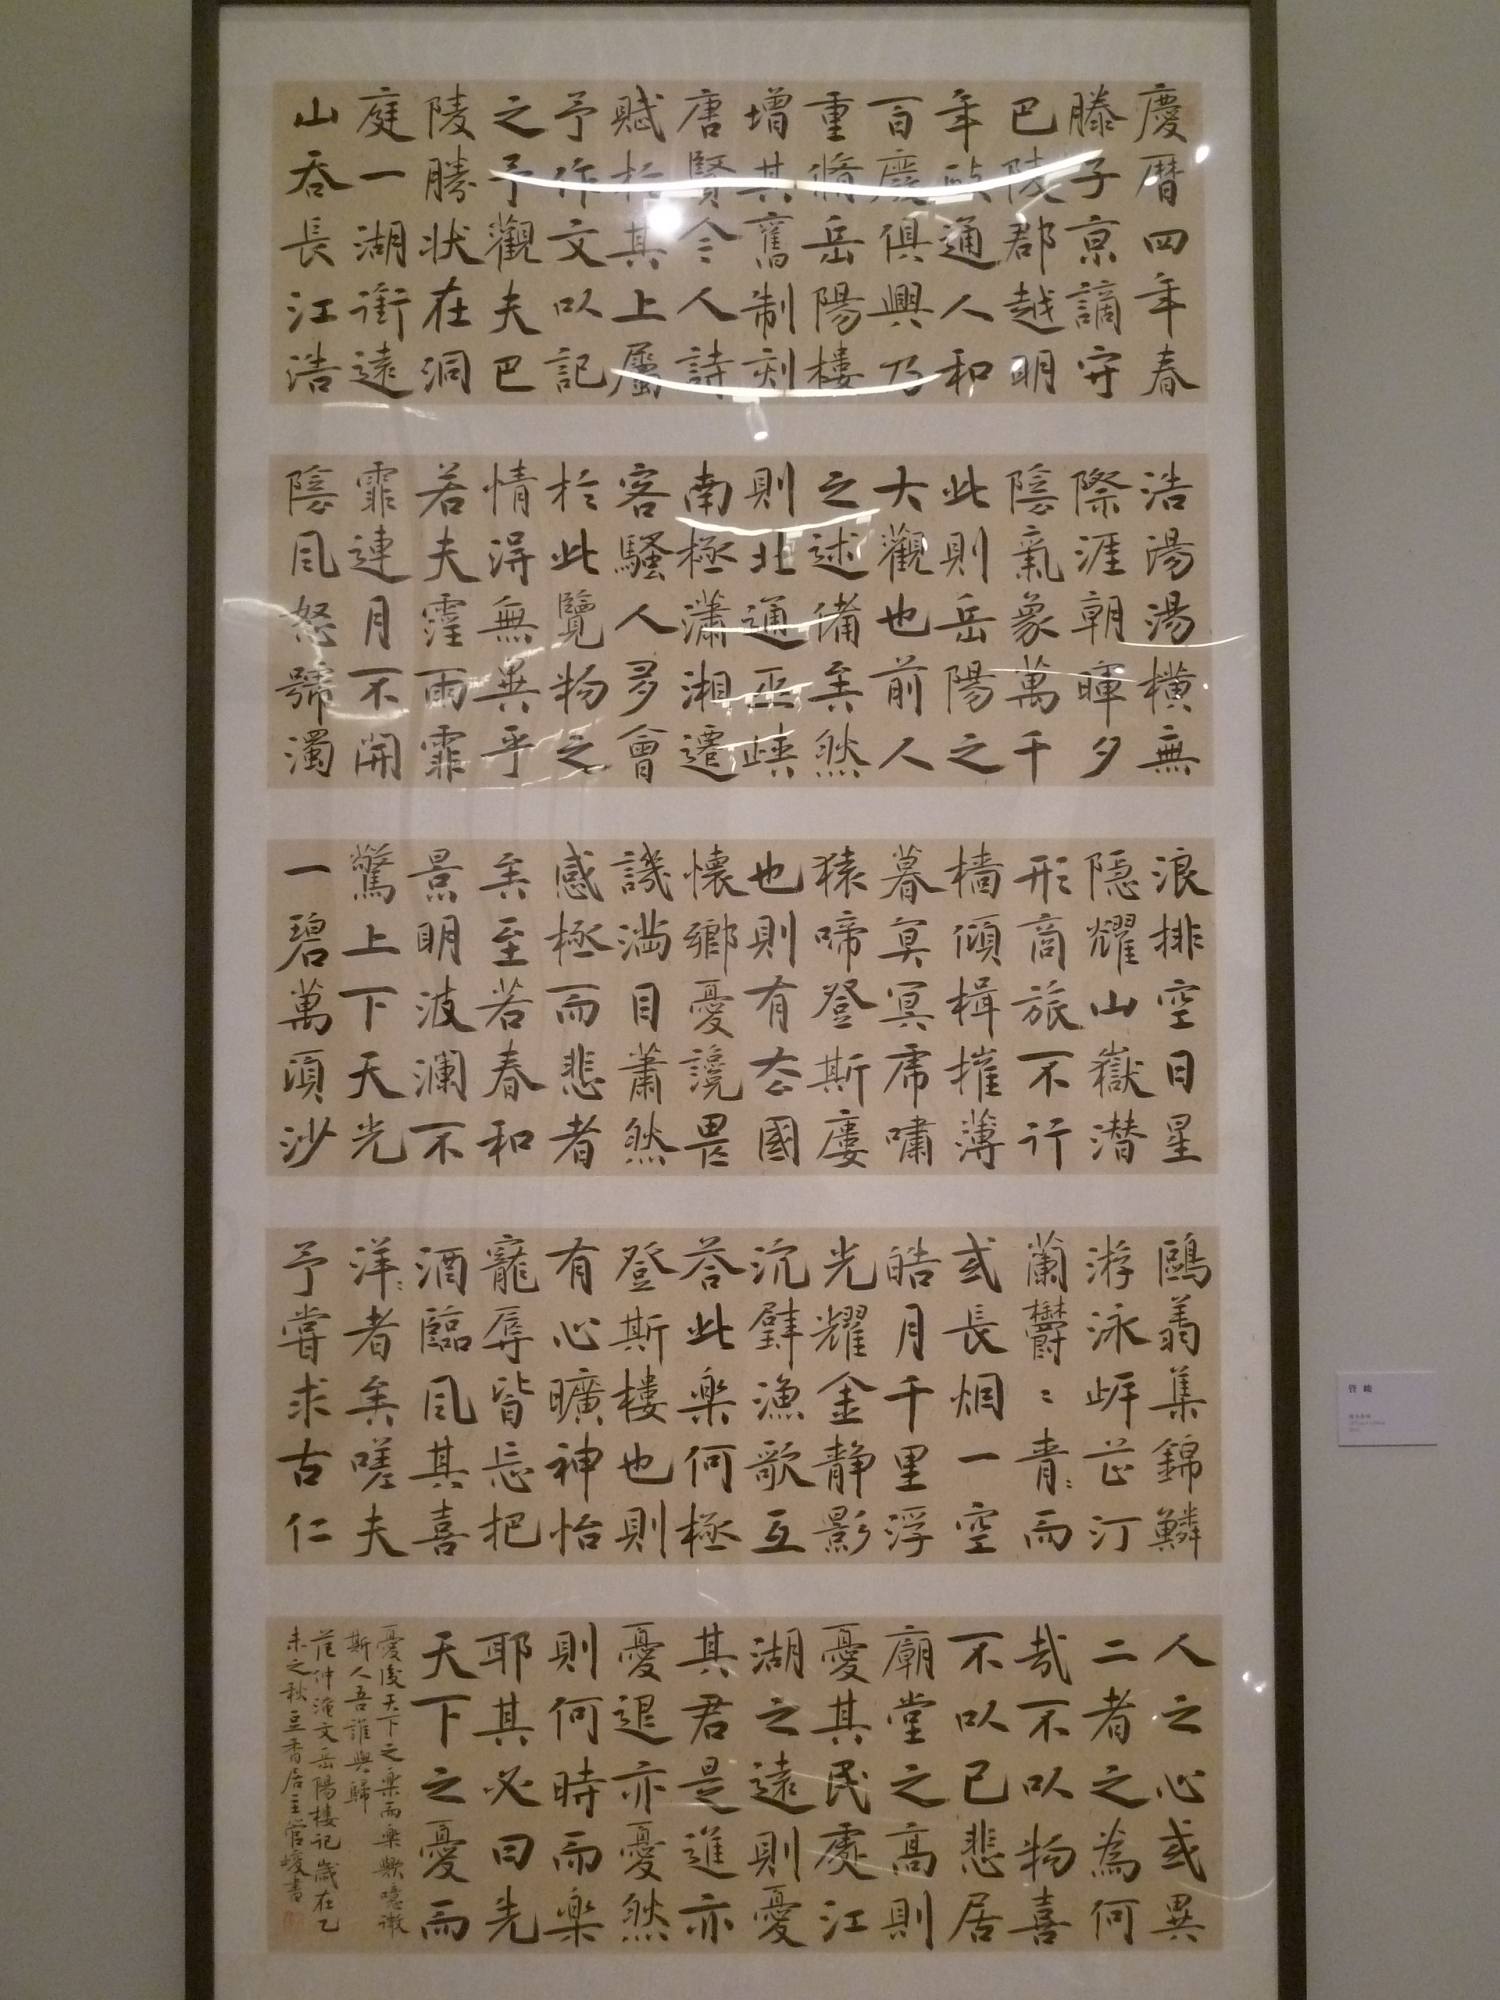 慶曆四年春
滕子京謫守
巴陵郡越明
年政通人和
百廢俱興乃
重脩岳陽樓
增其舊制刻
唐賢今人詩
賦於其上屬
予作文以記
之予觀夫巴
陵勝狀在洞
庭一湖銜遠
山吞長江浩
浩湯湯橫無
際涯朝暉夕
陰氣象萬千
此則岳陽之
大觀也前人
之述備矣然
則北通巫峽
南極瀟湘遷
客騷人多會
於此覽物之
情得無異乎
若夫霪雨霏
霏連月不開
陰風怒號濁
浪排空日星
隱耀山嶽潛
形商旅不行
檣傾楫摧薄
暮冥冥虎嘯
猿啼登斯廔
也則有去國
懷鄉憂讒畏
譏滿目蕭然
感極而悲者
矣至若春和
景明波瀾不
驚上下天光
一碧萬頃沙
鷗翔集錦鱗
游泳岸芷汀
蘭欝〻青〻而
或長烟一空
皓月千里浮
光耀金静影
沉璧漁歌互
荅此樂何極
登斯樓也則
有心曠神怡
寵辱皆忘把
酒臨風其喜
洋〻者矣嗟夫
予嘗求古仁
人之心或異
二者之為何
哉不以物喜
不以己悲居
廟堂之高則
憂其民處江
湖之遠則憂
其君是進亦
憂退亦憂然
則何時而樂
耶其必曰先
天下之憂而
憂後天下之樂而樂歟噫微
斯人吾誰與歸
范仲淹文岳陽樓記歲在乙
未之秋豆香居主管峻書
管峻